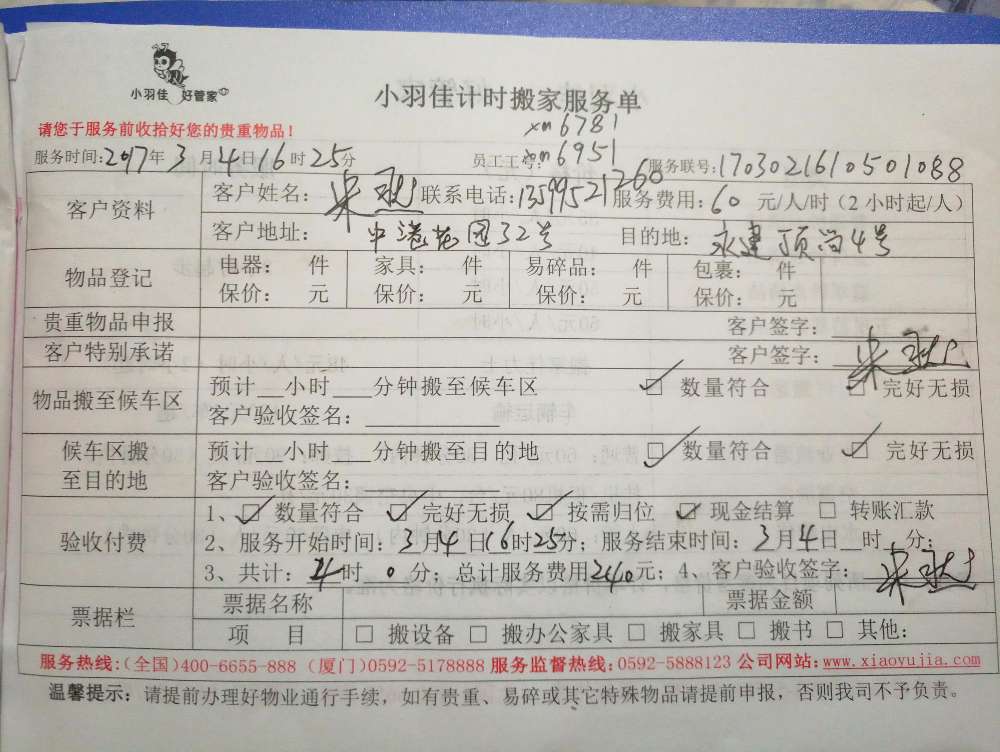 小羽佳 好管家
小羽佳计时搬家服务单
请您于服务前收拾好您的贵重物品!
xm6781
服务时间:2017年3月4日16时25分 员工工号: xm6951 服务联号:1703021610501088
客户资料 客户姓名: 宋 联系电话:13599521260 服务费用:60元/人/时(2小时起/人)
客户地址: 中港花园32号 目的地: 永建顶尚4号
物品登记 电器: 件 家具: 件 易碎品: 件 包裹: 件
保价: 元 保价: 元 保价: 元 保价: 元
贵重物品申报 客户签字:
客户特别承诺 客户签字: 宋
物品搬至候车区 预计__小时___分钟搬至候车区 ☑ 数量符合 ☑ 完好无损
客户验收签名:
候车区搬至目的地 预计__小时___分钟搬至目的地 ☑ 数量符合 ☑ 完好无损
客户验收签名:
验收付费 1、☑ 数量符合 ☑ 完好无损 ☑ 按需归位 ☑ 现金结算 □ 转账汇款
2、服务开始时间:3月4日16时25分;服务结束时间:3月4日__时__分;
3、共计:4时0分;总计服务费用240元;4、客户验收签字: 宋
票据栏 票据名称 票据金额
项 目 □ 搬设备 □ 搬办公家具 □ 搬家具 □ 搬书 □ 其他:
服务热线:(全国)400-6655-888 (厦门)0592-5178888 服务监督热线:0592-5888123 公司网站:www.xiaoyujia.com
温馨提示:请提前办理好物业通行手续,如有贵重、易碎或其它特殊物品请提前申报,否则我司不予负责。